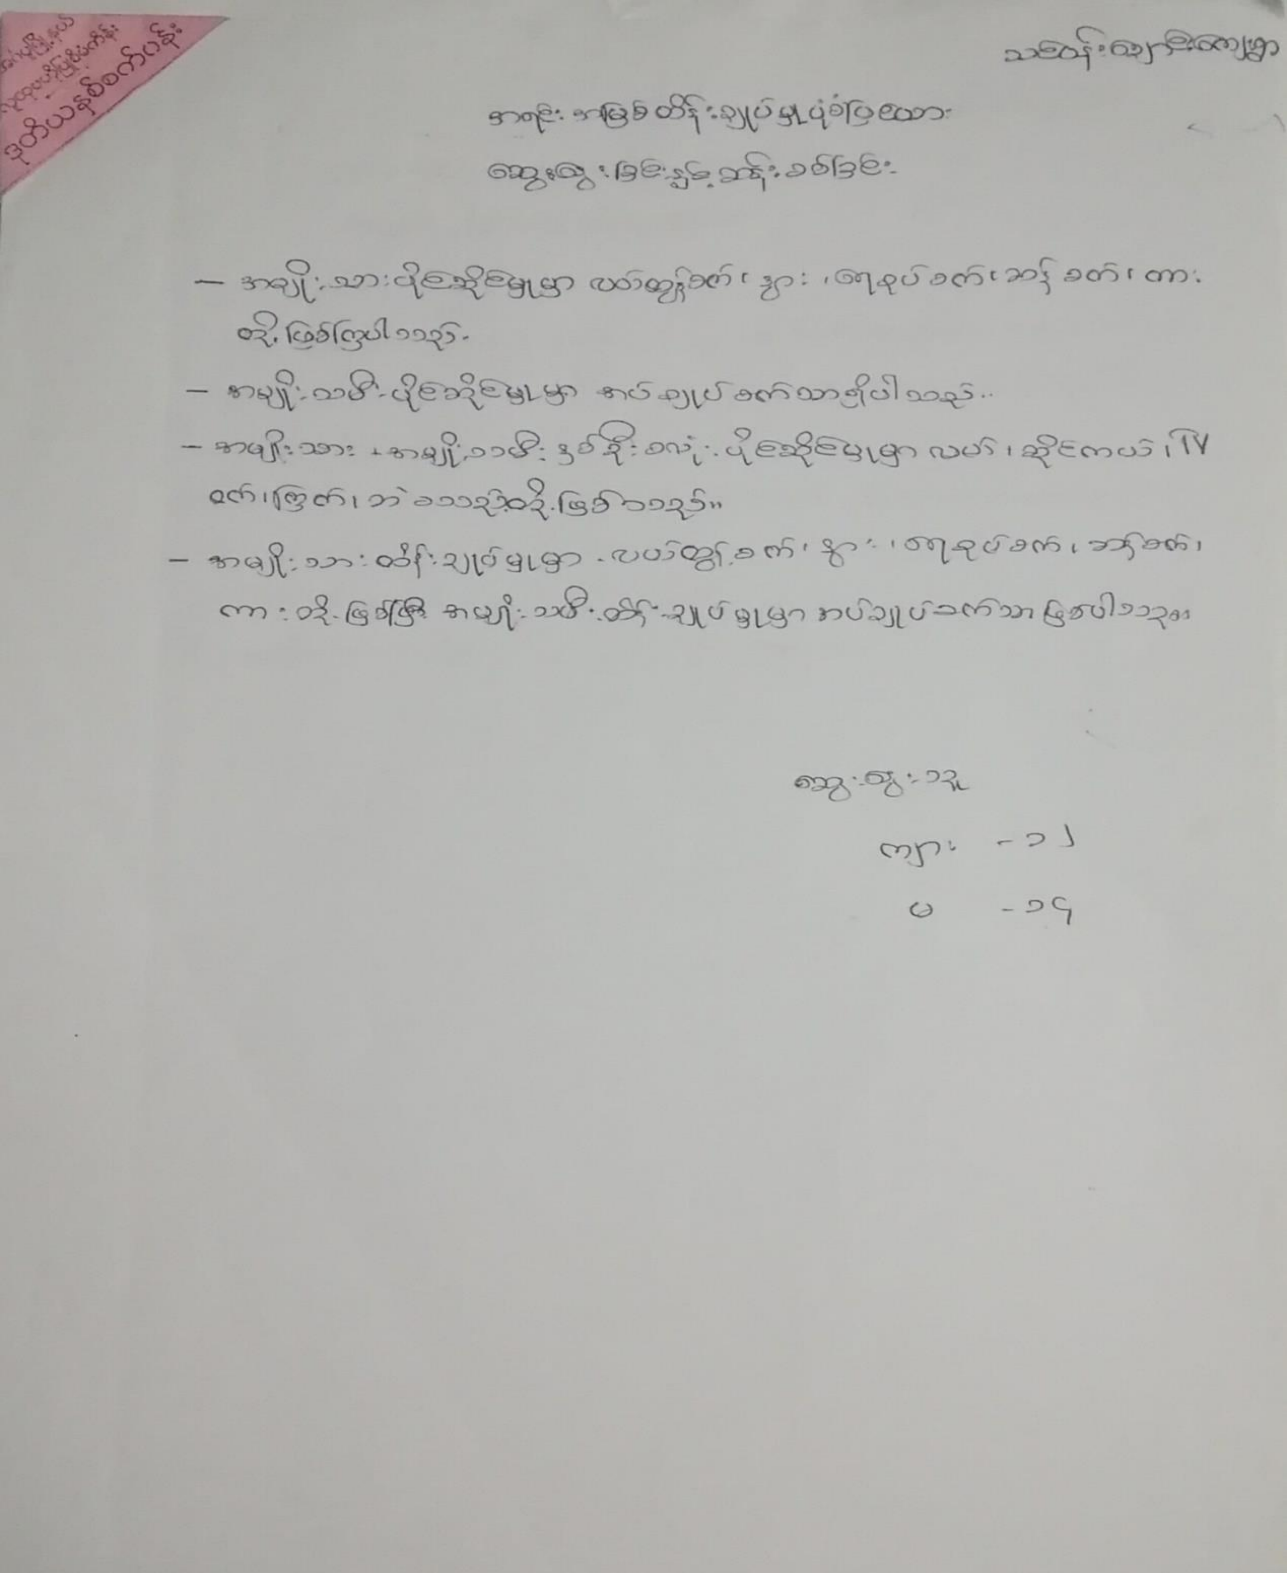 ဒုတိယနှစ်စက်ဝန်း
အရင်းအမြစ်ထိန်းချုပ်မှုပုံစံပြဇယား
ဆွေးနွေးခြင်းနှင့်ဆန်းစစ်ခြင်း
- အမျိုးသားပိုင်ဆိုင်မှုမှာ လယ်ထွန်စက်၊ နွား၊ ရေစုပ်စက်၊ ဆန်စက်၊ ကား
တို့ဖြစ်ကြပါသည်။
- အမျိုးသမီးပိုင်ဆိုင်မှုမှာ အပ်ချုပ်စက်သာရှိပါသည်။
- အမျိုးသား + အမျိုးသမီး နှစ်ဦးစလုံးပိုင်ဆိုင်မှုမှာ လယ်၊ ဆိုင်ကယ်၊ TV
ဝက်၊ ကြက်၊ ဘဲ စသည်တို့ဖြစ်သည်။
- အမျိုးသားထိန်းချုပ်မှုမှာ လယ်ထွန်စက်၊ နွား၊ ရေစုပ်စက်၊ ဆန်စက်၊
ကားတို့ဖြစ်ပြီး အမျိုးသမီးထိန်းချုပ်မှုမှာ အပ်ချုပ်စက်သာဖြစ်ပါသည်။
ဆွေးနွေးသူ
ကျား - ၁၂
မ - ၁၄